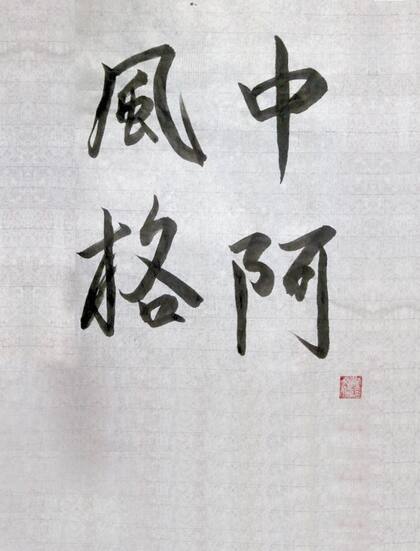 中阿
風格